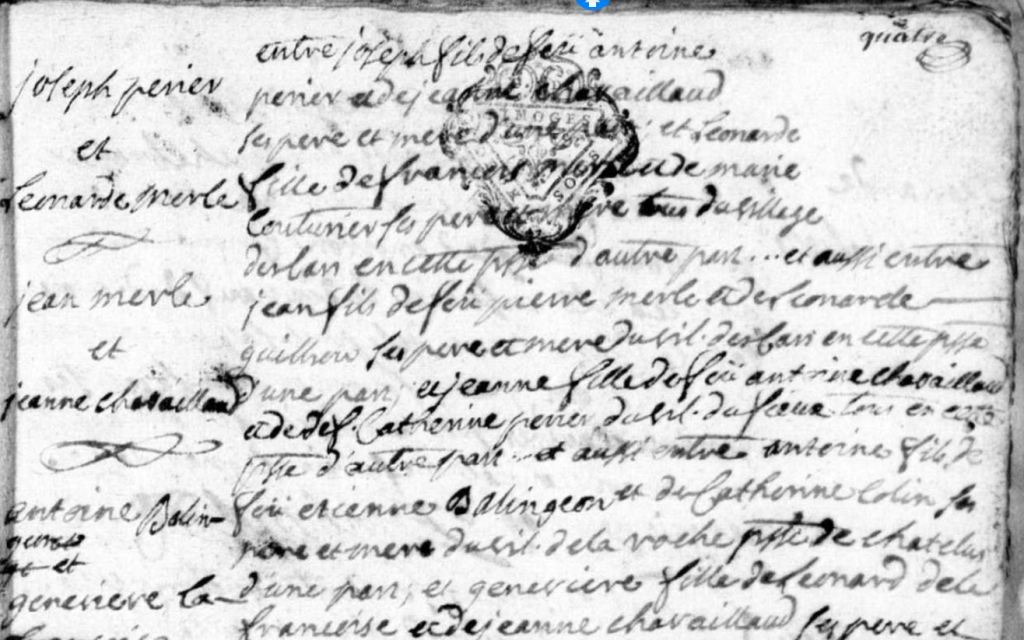 quatre
joseph perier
et
Leonarde merle
jean merle
et
jeanne chavaillaud
antoine Balin-
geon
et
genevieve la-
entre joseph fils de feü antoine
perier et de jeanne chavaillaud
ses pere et mere d'une part; et Leonarde
fille de francois merle et de marie
Couturier ses pere et mere tous du village
en cette psse d'autre part... et aussi entre
jean fils de feü pierre merle et de Leonarde
ses pere et mere du vil. en cette psse
d'une part, et jeanne fille de feü antoine chavaillaud
et de def. Catherine perier du vil. du tous en cette
psse d'autre part... et aussi entre antoine fils de
feü etienne Balingeon et de Catherine Colin ses
pere et mere du vil. de la roche psse de chatelus
d'une part, et genevieve fille de Leonard de la
francoise et de jeanne chavaillaud ses pere et